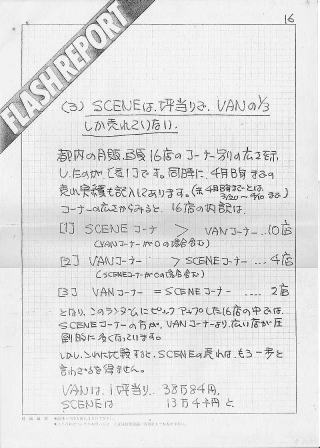 16
FLASH REPORT
(3) SCENEは、坪当りで、VANの1/3
しか売れていない.
都内の月販、百貨16店のコーナー別の広さを示
したのが、[表1]です。同時に、4月自身までの
売れ実績も記入してあります。(※4月自身までとは
3/20〜4/10まで)
コーナーの広さからみると、16店の内訳は、
[1] SCENEコーナー > VANコーナー...10店
(VANコーナーが0の場合含む)
[2] VANコーナー > SCENEコーナー... 4店
(SCENEコーナーが0の場合含む)
[3] VANコーナー = SCENEコーナー .... 2店
となり、このランダムにピックアップした16店の中では、
SCENEコーナーの方が、VANコーナーより、広い店が圧
倒的に多くなっています。
しかし、これに比較すると、SCENEの売れは、もう一歩と
言わざるを得ません。
VANは、1坪当り、 38万84円、
SCENEは 13万4千円と